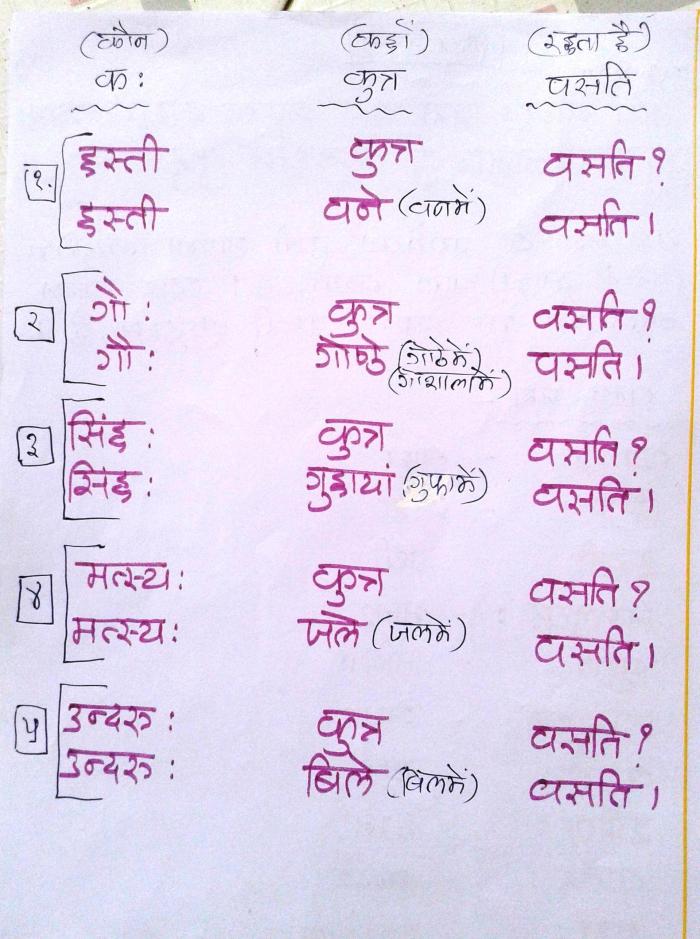 (कौन) (कहाँ) (रहता है)
कः कुत्र वसति
१. हस्ती कुत्र वसति ?
हस्ती वने (वनमें) वसति ।
२ गौः कुत्र वसति ?
गौः गोष्ठे (गोठेमें) वसति ।
(गोशालामें)
३ सिंहः कुत्र वसति ?
सिंहः गुहायां (गुफामें) वसति ।
४ मत्स्यः कुत्र वसति ?
मत्स्यः जले (जलमें) वसति ।
५ उन्दरुः कुत्र वसति ?
उन्दरुः बिले (बिलमें) वसति ।